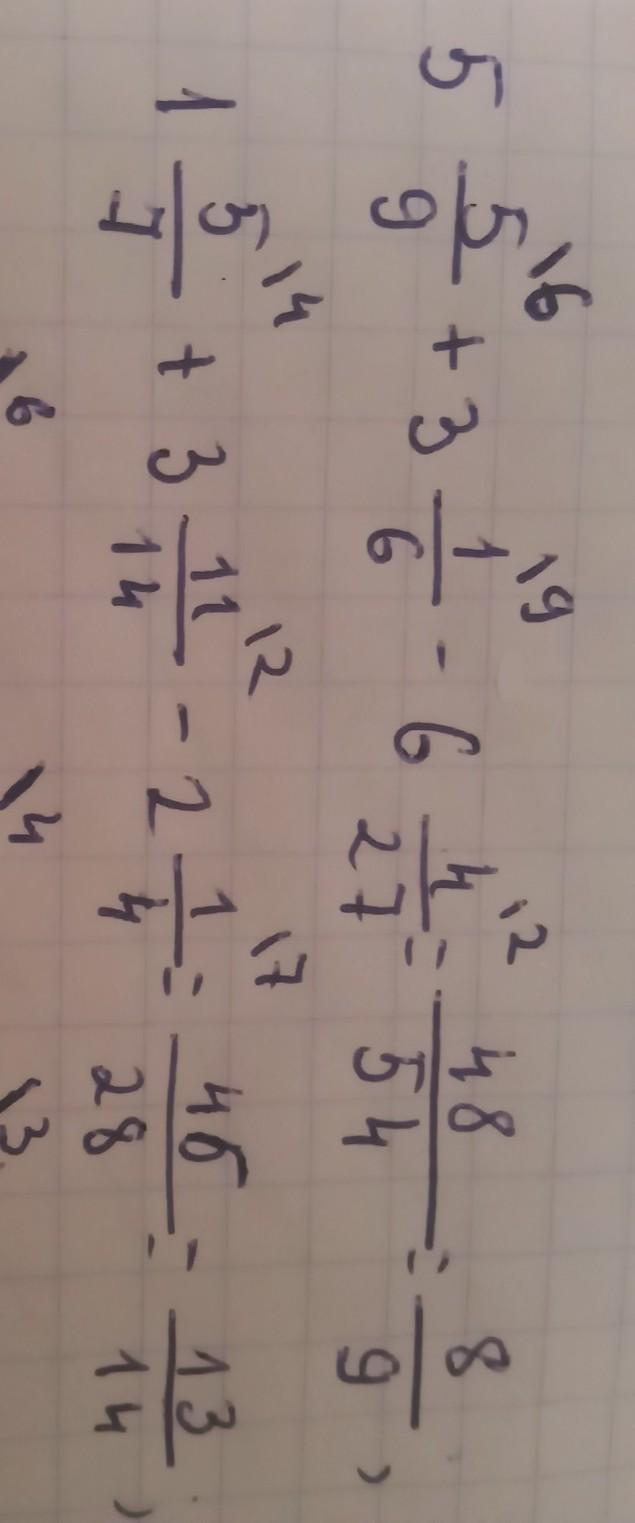 5 5/9 \6 + 3 1/6 \9 - 6 4/27 \2 = 48/54 = 8/9 ,
1 5/7 \4 + 3 11/14 \2 - 2 1/4 \7 = 46/28 = 13/14 ,
\6 \4 \3